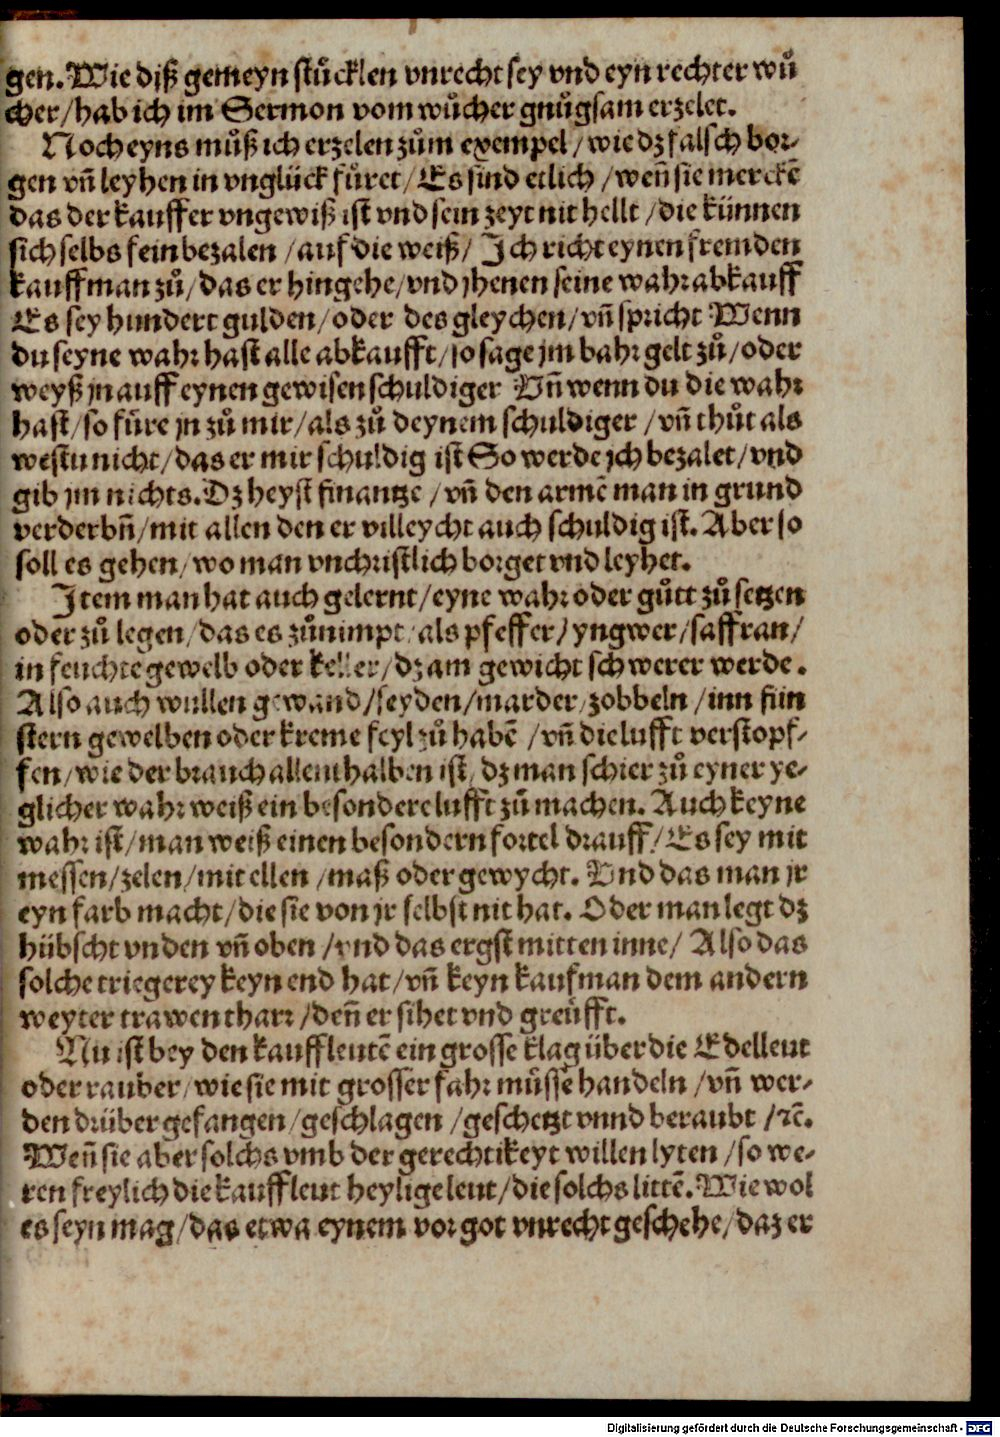 gen. Wie diß gemeyn stuͤcklen vnrecht sey vnd eyn rechter wuͦ
cher/hab ich im Sermon vom wuͦcher gnuͦgsam erzelet.
Noch eyns muͦß ich erzelen zuͦm exempel/wie dz falsch bor-
gen vñ leyhen in vnglück fuͤret/Es sind etlich/weñ sie merckẽ
das der kauffer vngewiß ist vnd sein zeyt nit hellt/die künnen
sich selbs fein bezalen/auf die weiß/Ich richt eynen fremden
kauffman zuͦ/das er hingehe/vnd jhenen seine wahr abkauff
Es sey hundert gulden/oder des gleychen/vñ spricht Wenn
du seyne wahr hast alle abkaufft/so sage jm bahr gelt zuͦ/oder
weyß jn auff eynen gewisen schuldiger Vñ wenn du die wahr
hast/so fuͤre jn zuͦ mir/als zuͦ deynem schuldiger/vñ thuͦt als
westu nicht/das er mir schuldig ist So werde jch bezalet/vnd
gib jm nichts. Dz heyst finantze/vñ den armẽ man in grund
verderbñ/mit allen den er villeycht auch schuldig ist. Aber so
soll es gehen/wo man vnchristlich borget vnd leyhet.
Item man hat auch gelernt/eyne wahr oder guͦtt zuͦ setzen
oder zuͦ legen/das es zuͦnimpt/als pfeffer/yngwer/saffran/
in feuchte gewelb oder keller/dz am gewicht schwerer werde.
Also auch wullen gewand/seyden/marder/zobbeln/inn fiin
stern gewelben oder kreme feyl zuͦ habẽ/vñ die lufft verstopf-
fen/wie der brauch allenthalben ist/dz man schier zuͦ eyner ye-
glicher wahr weiß ein besondere lufft zuͦ machen. Auch keyne
wahr ist/man weiß einen besondern fortel drauff/Es sey mit
messen/zelen/mit ellen/maß oder gewycht. Vnd das man jr
eyn farb macht/die sie von jr selbst nit hat. Oder man legt dz
hübscht vnden vñ oben/vnd das ergst mitten inne/Also das
solche triegerey keyn end hat/vñ keyn kaufman dem andern
weyter trawen tharr/deñ er sihet vnd greüfft.
Nu ist bey den kauffleutẽ ein grosse klag über die Edelleut
oder rauber/wie sie mit grosser fahr muͤssẽ handeln/vñ wer-
den drüber gefangen/geschlagen/geschetzt vnnd beraubt/ꝛc̃.
Weñ sie aber solchs vmb der gerechtikeyt willen lyten/so we-
ren freylich die kauffleut heylige leut/die solchs littẽ. Wie wol
es seyn mag/das etwa eynem vor got vnrecht geschehe/daz er
Digitalisierung gefördert durch die Deutsche Forschungsgemeinschaft - DFG